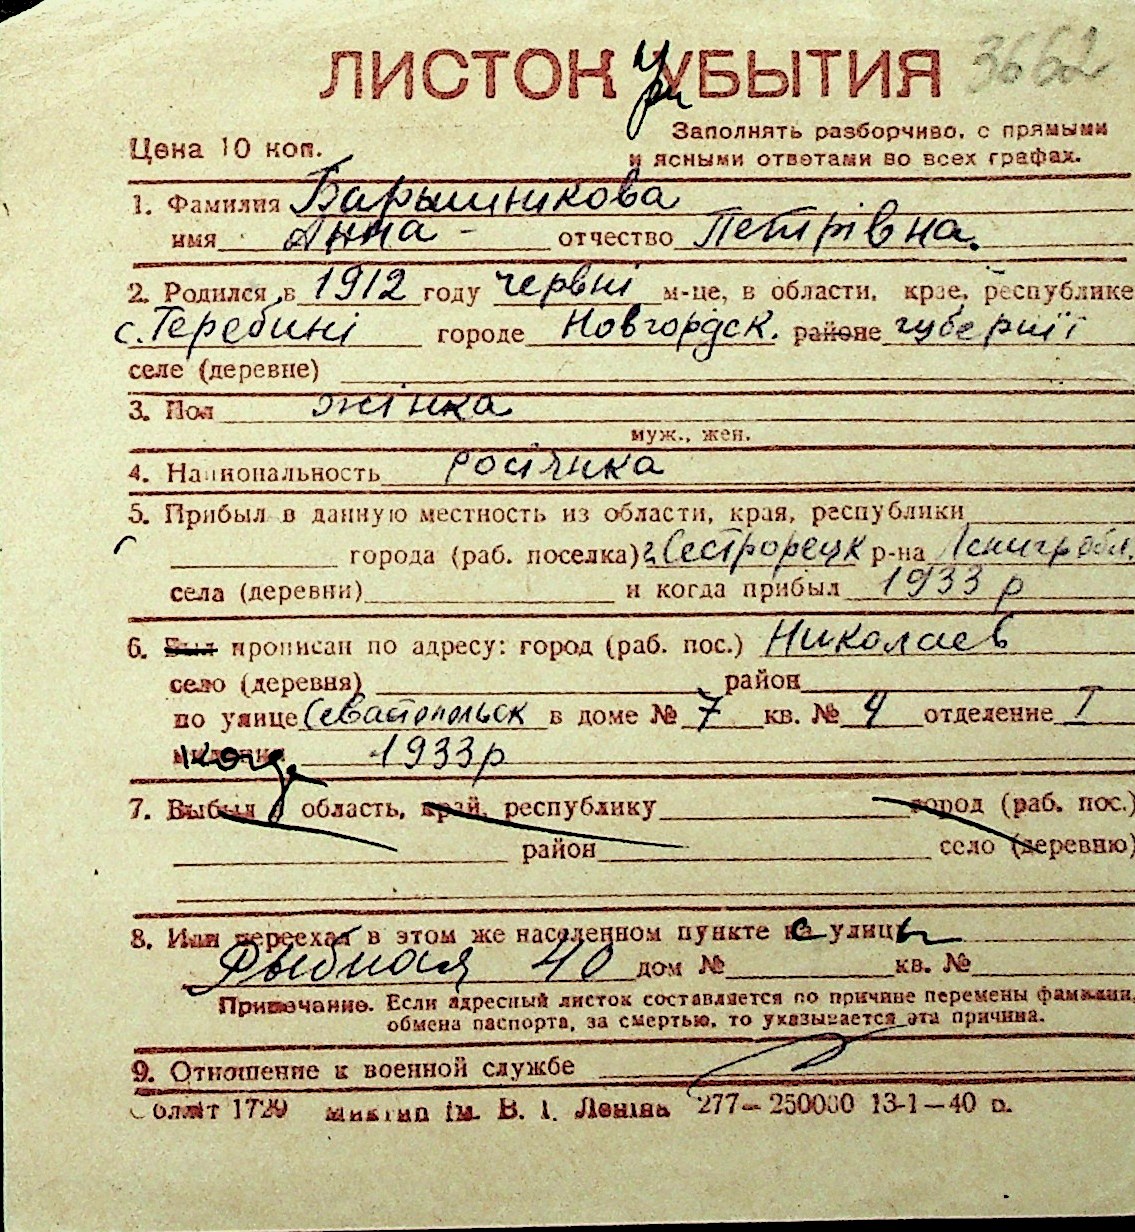 ЛИСТОК УБЫТИЯ 3662
При
Цена 10 коп.
Заполнять разборчиво, с прямыми
и ясными ответами во всех графах.
1. Фамилия Барышникова
имя Анна - отчество Петрівна.
2. Родился в 1912 году червні м-це, в области, крае, республике
с. Теребині городе Новгордск. районе губернії
селе (деревне)
3. Пол жінка
муж., жен.
4. Национальность росіянка
5. Прибыл в данную местность из области, края, республики
города (раб. поселка) г. Сестрорецк р-на Ленигр обл.
села (деревни) и когда прибыл 1933 р
6. Был прописан по адресу: город (раб. пос.) Николаев
село (деревня) район
по улице Севастопольск в доме № 7 кв. № 4 отделение I
когда 1933 р
7. Выбыл в область, край, республику город (раб. пос.)
район село (деревню)
8. Или переехал в этом же населенном пункте с улицы
Рыбная 40 дом № кв. №
Примечание. Если адресный листок составляется по причине перемены фамилии,
обмена паспорта, за смертью, то указывается эта причина.
9. Отношение к военной службе
1729 ім. В. І. Леніна 277—250000 13-1—40 р.